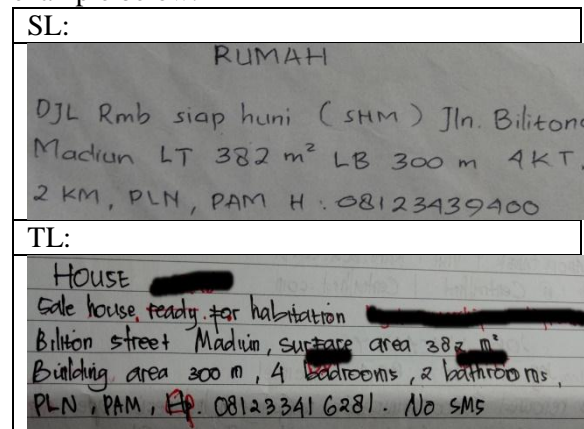 SL:
RUMAH
DJL Rmb siap huni ( SHM ) Jln. Biliton
Madiun LT 382 m² LB 300 m 4KT.
2 KM, PLN, PAM H : 08123439400
TL:
HOUSE
Sale house, ready for habitation
Biliton street Madiun, surface area 382 m²
Building area 300 m, 4 badrooms, 2 bathrooms,
PLN, PAM, Hp. 081233416281. No SMS